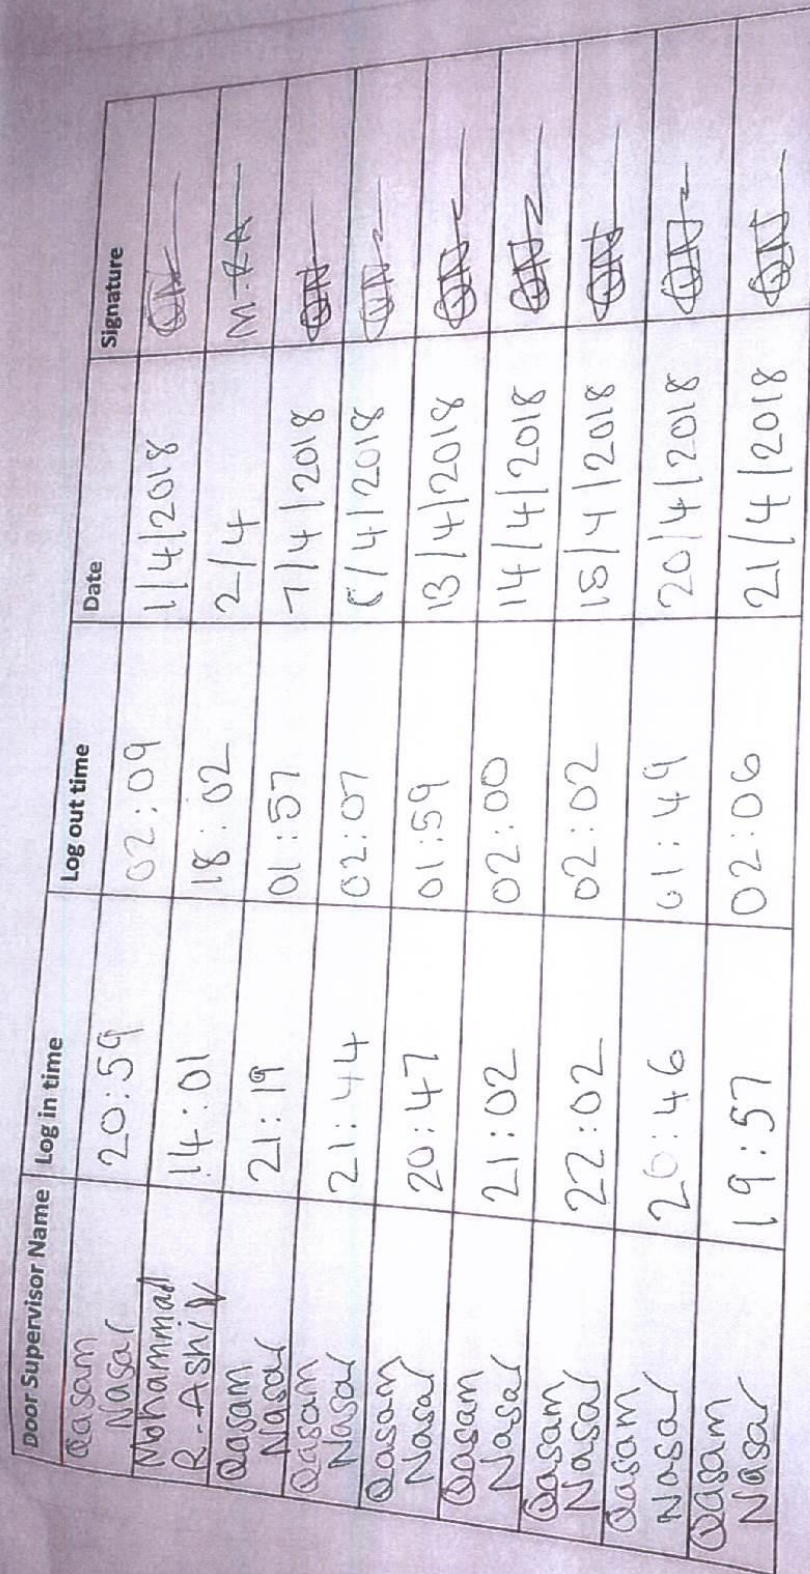 Door Supervisor Name Log in time Log out time Date Signature
Qasam Nasar 20:59 02:09 1/4/2018 QN
Mohammad R-Ashid 14:01 18:02 2/4 M-RA
Qasam Nasar 21:19 01:57 7/4/2018 QN
Qasam Nasar 21:44 02:07 /4/2018 QN
Qasam Nasar 20:47 01:59 13/4/2018 QN
Qasam Nasar 21:02 02:00 14/4/2018 QN
Qasam Nasar 22:02 02:02 15/4/2018 QN
Qasam Nasar 20:46 01:49 20/4/2018 QN
Qasam Nasar 19:57 02:06 21/4/2018 QN